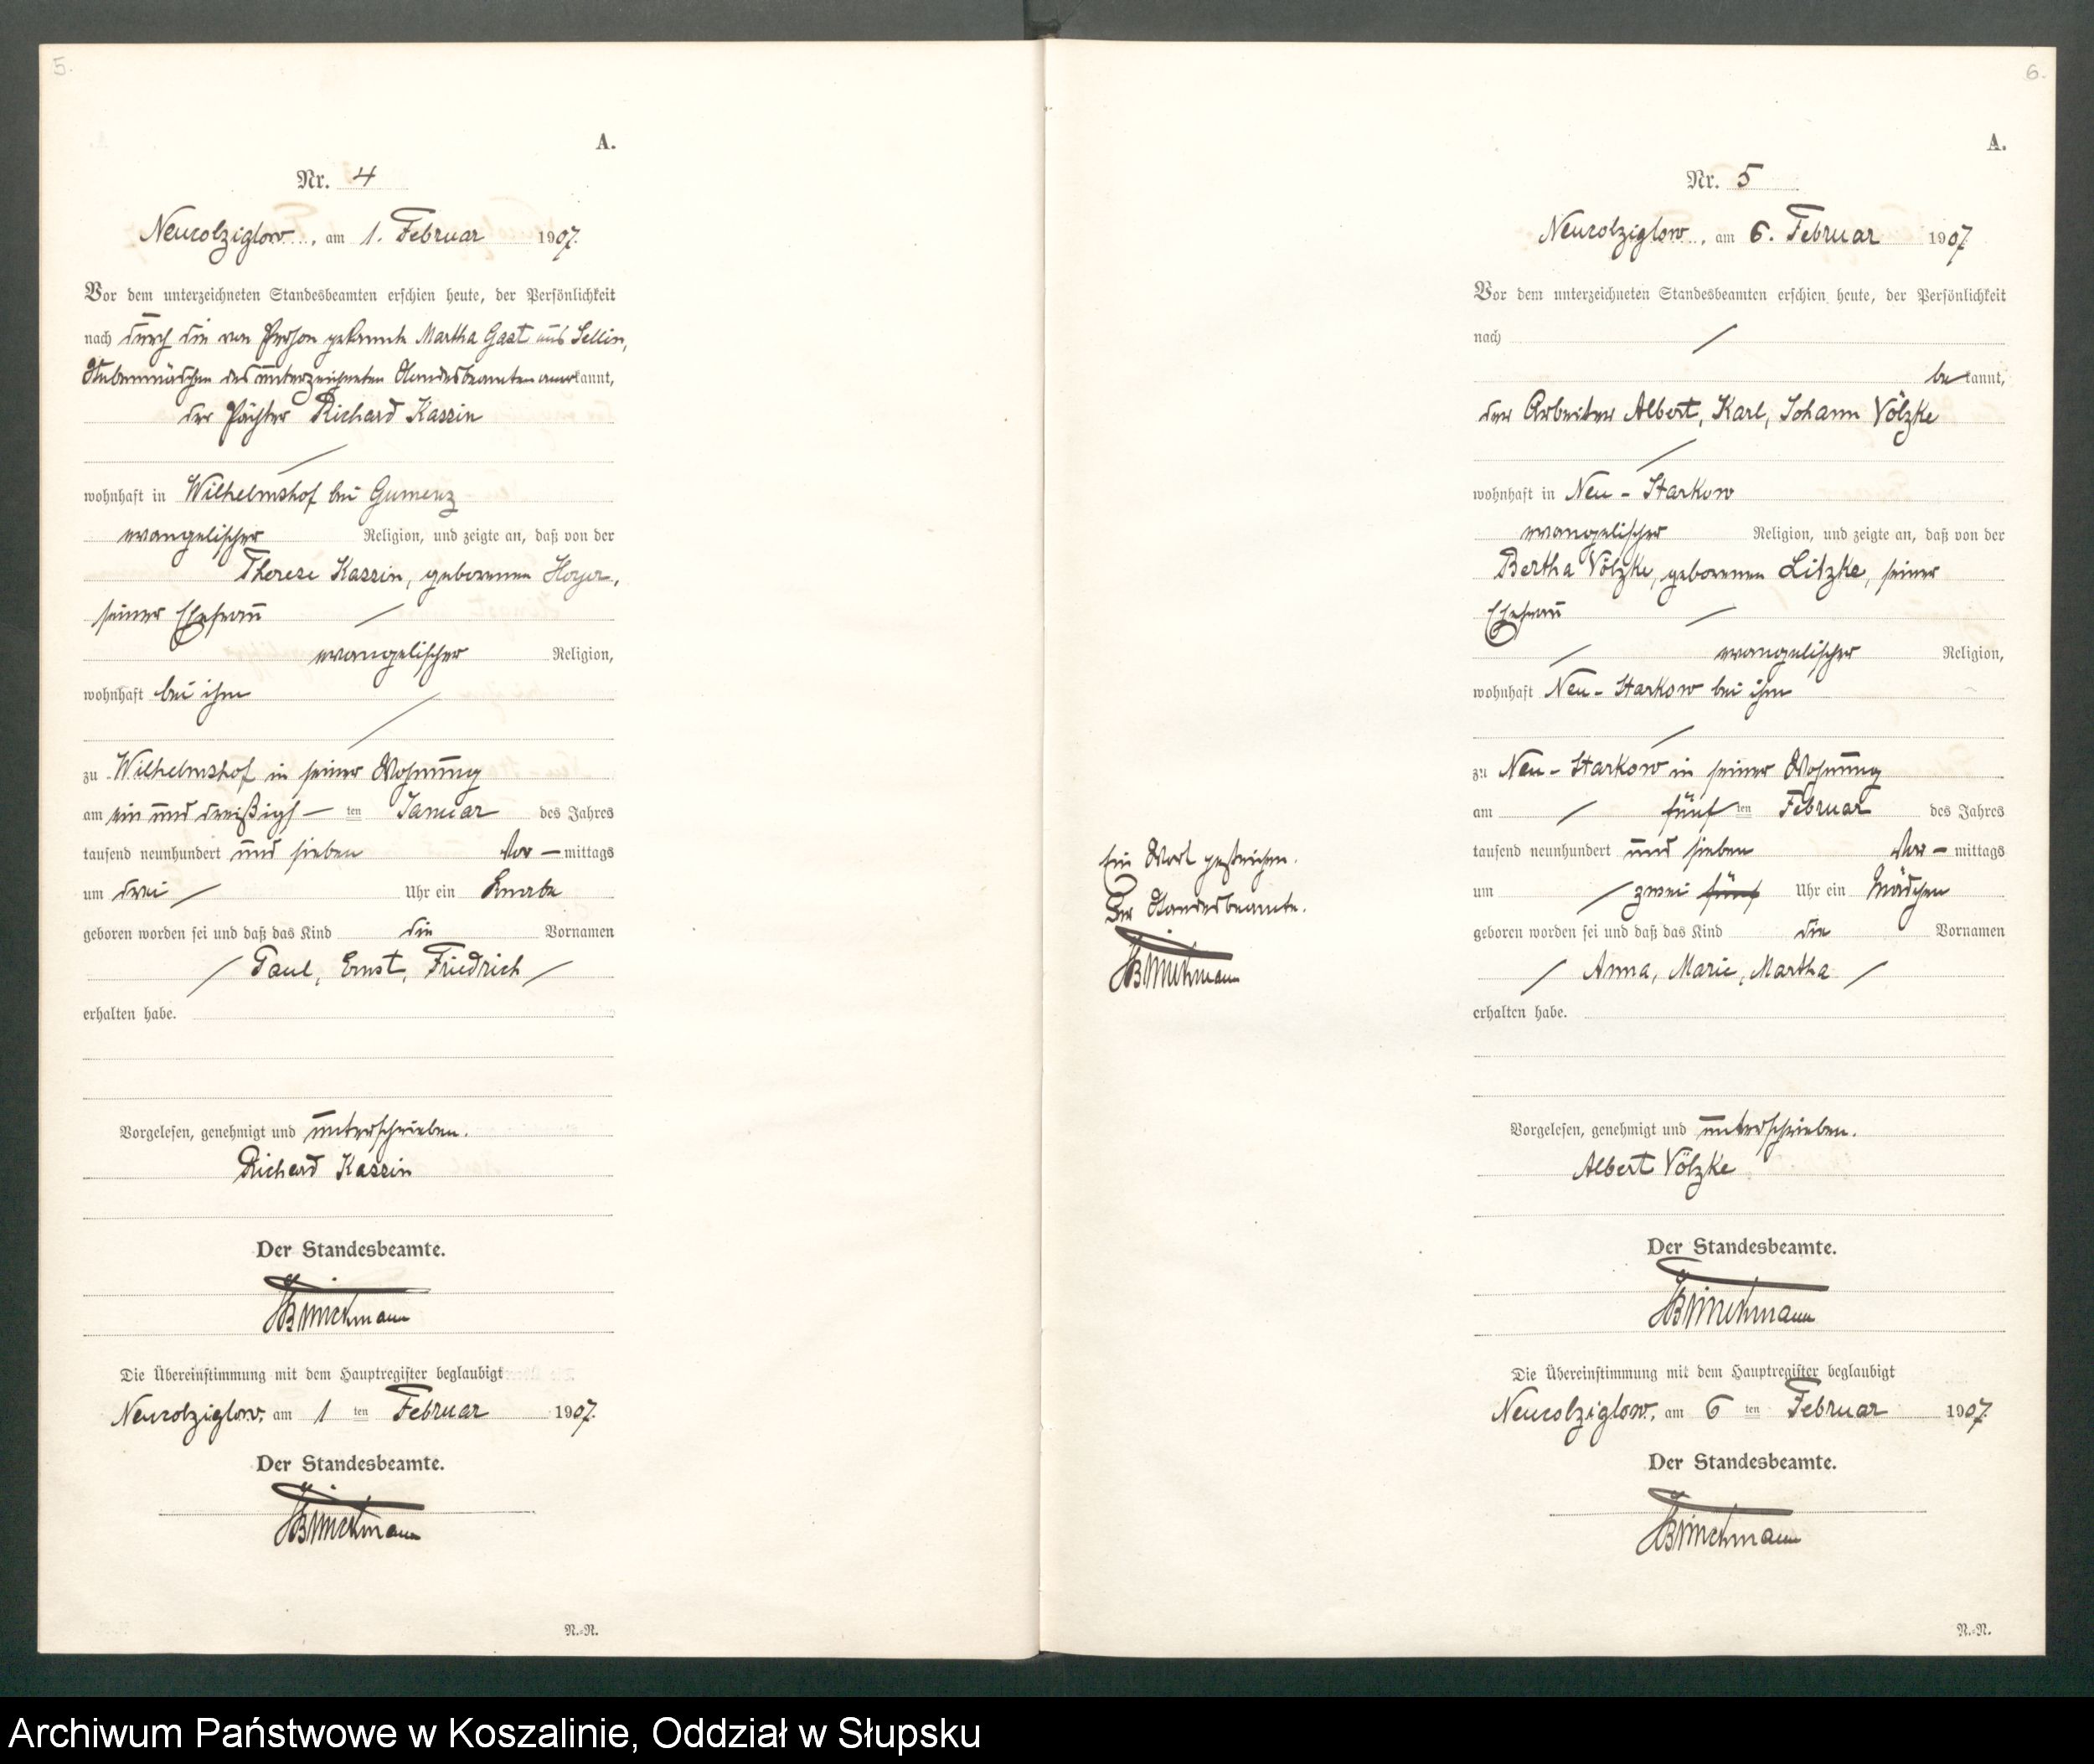 5.
A.
Nr. 4
Neukolziglow, am 1. Februar 1907.
Vor dem unterzeichneten Standesbeamten erschien heute, der Persönlichkeit
nach durch die von Person gekannte Martha Gast aus Sellin,
Stubenmädchen des unterzeichneten Standesbeamten anerkannt,
der Pächter Richard Kassin
wohnhaft in Wilhelmshof bei Gumenz
evangelischer Religion, und zeigte an, daß von der
Therese Kassin, geborenen Hoyer,
seiner Ehefrau
evangelischer Religion,
wohnhaft bei ihm
zu Wilhelmshof in seiner Wohnung
am ein und dreißigs—ten Januar des Jahres
tausend neunhundert und sieben Vor—mittags
um drei Uhr ein Knabe
geboren worden sei und daß das Kind die Vornamen
Paul, Ernst, Friedrich
erhalten habe.
Vorgelesen, genehmigt und unterschrieben.
Richard Kassin
Der Standesbeamte.
Brinckmann
Die Übereinstimmung mit dem Hauptregister beglaubigt
Neukolziglow, am 1 ten Februar 1907.
Der Standesbeamte.
Brinckmann
N.=N.
6.
A.
Nr. 5
Neukolziglow, am 6. Februar 1907
Vor dem unterzeichneten Standesbeamten erschien heute, der Persönlichkeit
nach
bekannt,
der Arbeiter Albert, Karl, Johann Völzke
wohnhaft in Neu-Starkow
evangelischer Religion, und zeigte an, daß von der
Bertha Völzke, geborenen Litzke, seiner
Ehefrau
evangelischer Religion,
wohnhaft Neu-Starkow bei ihm
zu Neu-Starkow in seiner Wohnung
am fünften Februar des Jahres
tausend neunhundert und sieben Vor—mittags
um zwei fünf Uhr ein Mädchen
geboren worden sei und daß das Kind die Vornamen
Anna, Marie, Martha
erhalten habe.
Ein Wort gestrichen.
Der Standesbeamte.
Brinckmann
Vorgelesen, genehmigt und unterschrieben.
Albert Völzke
Der Standesbeamte.
Brinckmann
Die Übereinstimmung mit dem Hauptregister beglaubigt
Neukolziglow, am 6 ten Februar 1907.
Der Standesbeamte.
Brinckmann
N.=N.
Archiwum Państwowe w Koszalinie, Oddział w Słupsku